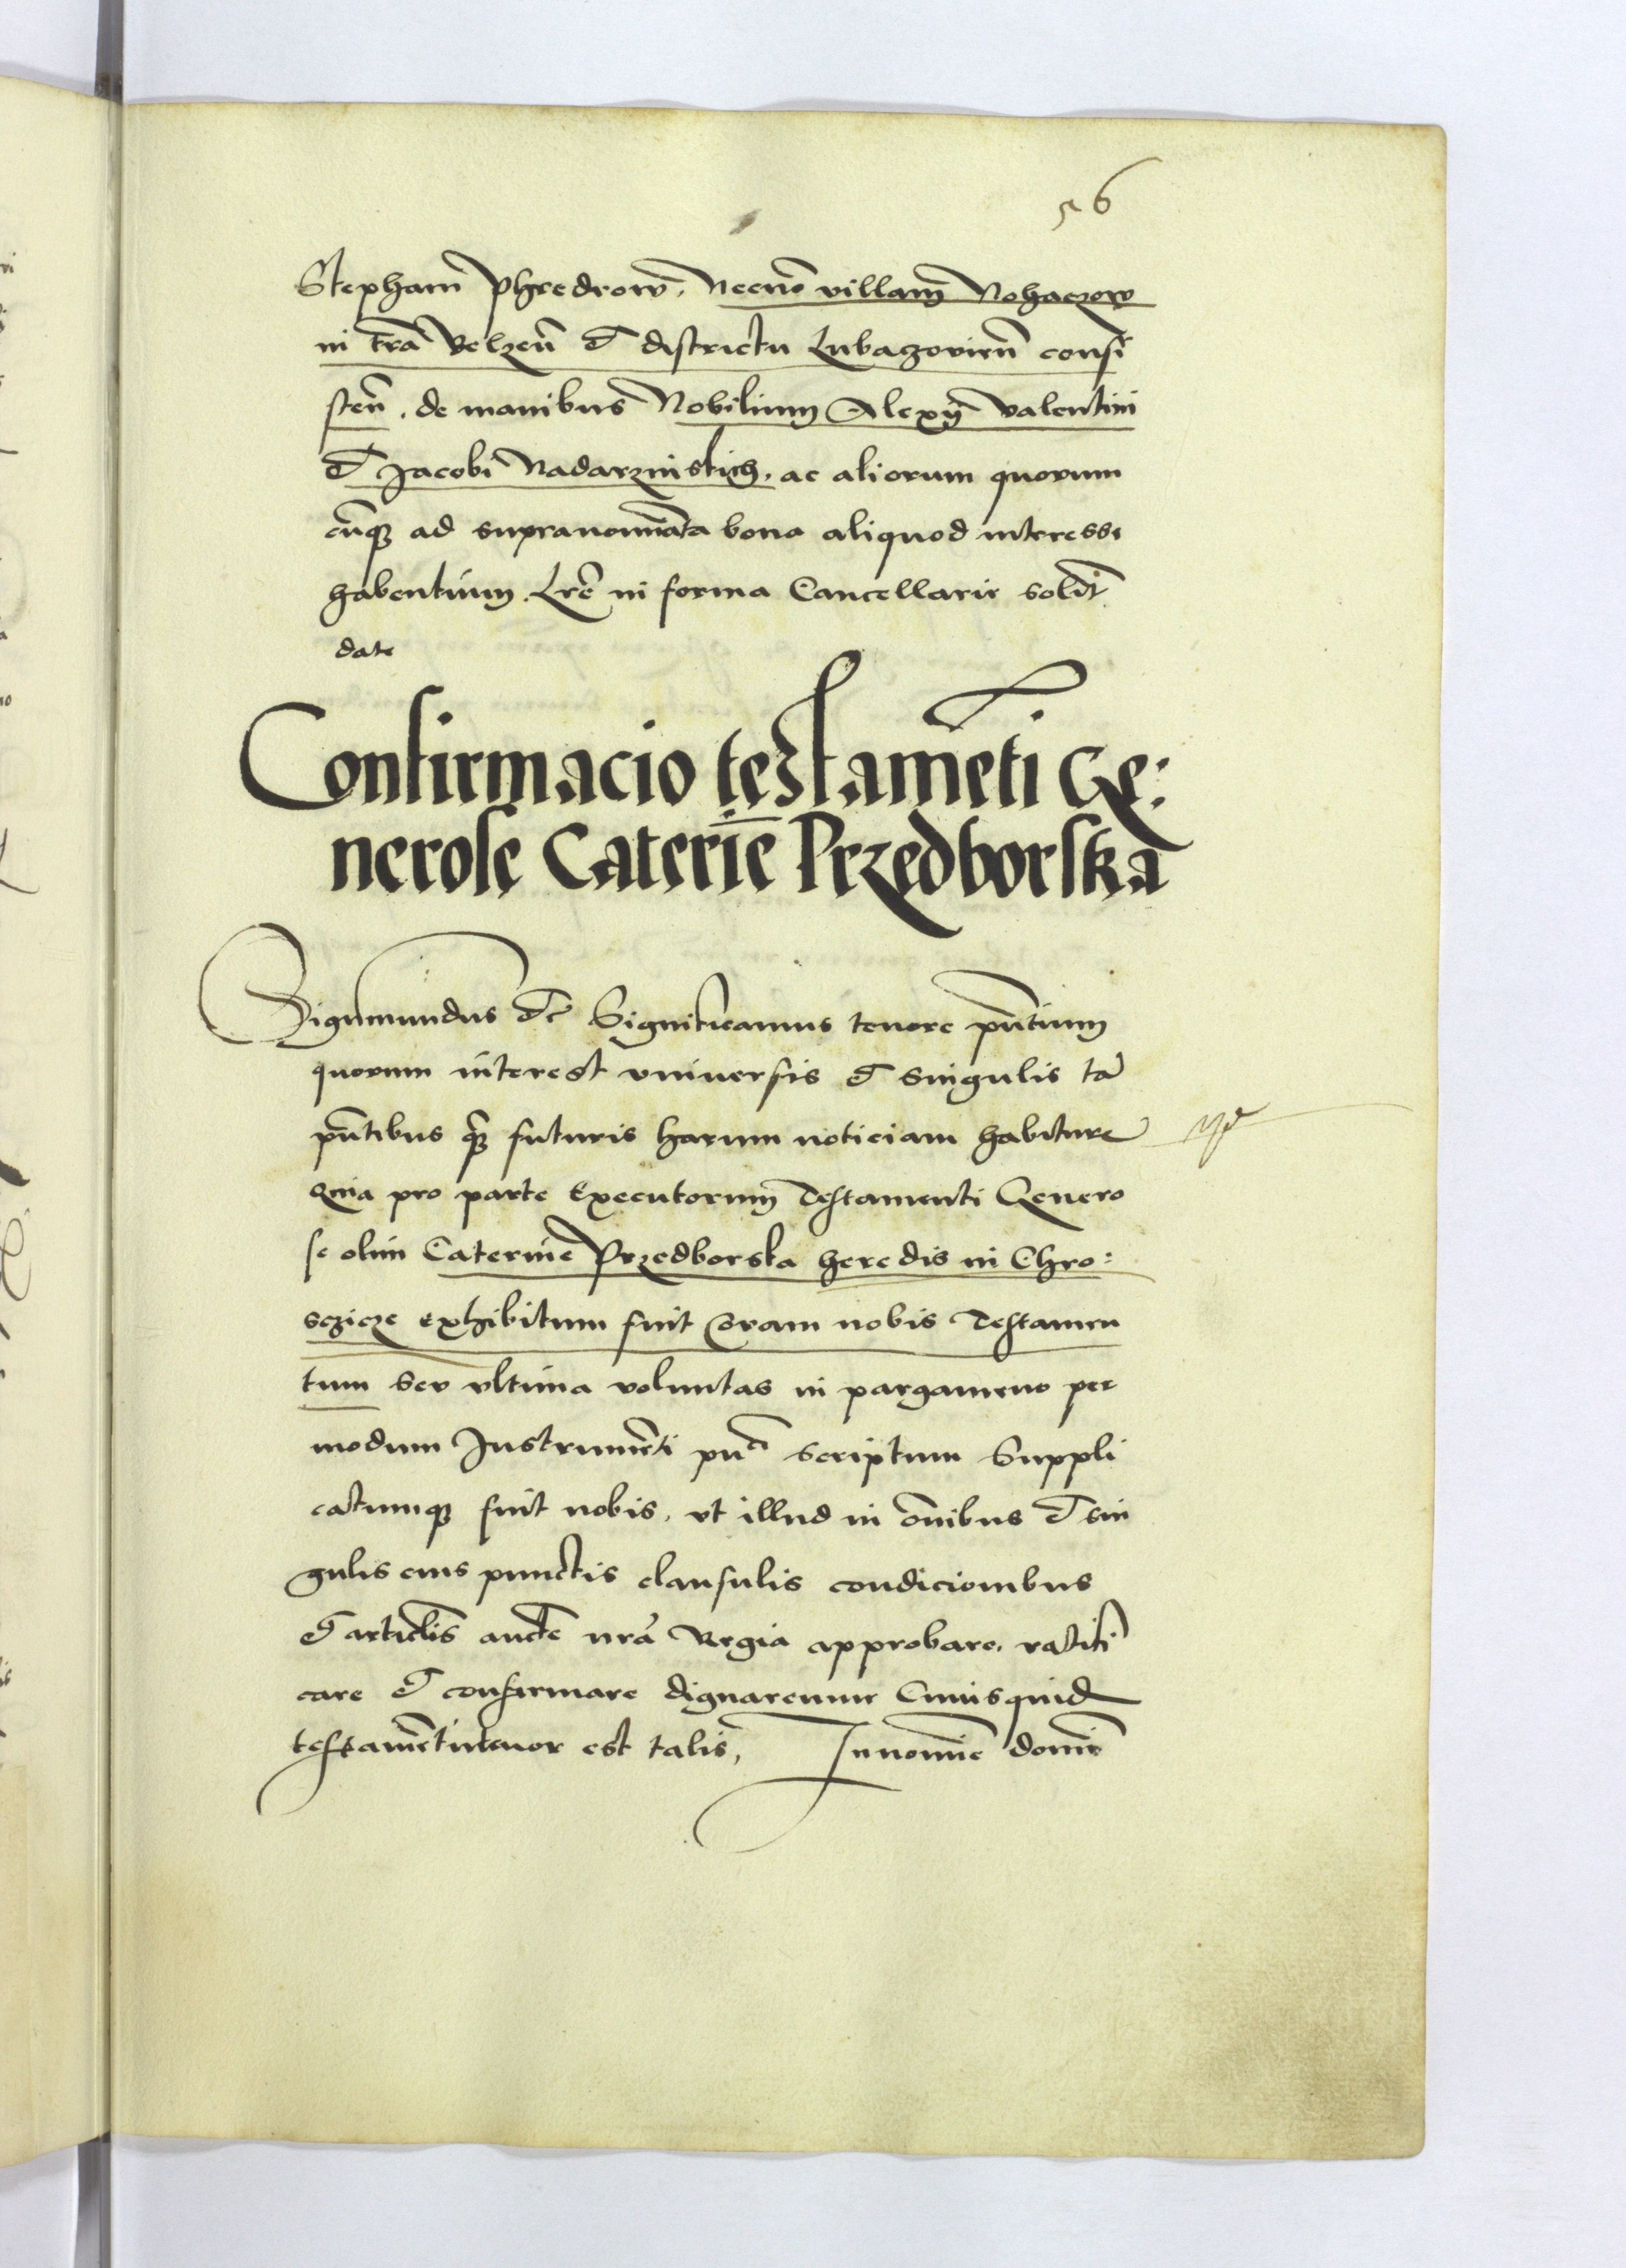 56
Stephani Phredrow, Necno villam Nohaczow
in tra Belzen et districtu Lubaczovien consi
sten, de manibus Nobilium Alexy Valentini
et Jacobi Nadarzinskich, ac aliorum quorum
cunq ad supranominata bona aliquod interesse
habentium. Lre in forma Cancellarie solit
date
Confirmacio testameti Ge:
nerose Caterie Przedborska
Sigismundus etc Significamus tenore pntium
quorum interest universis et singulis ta
pntibus q futuris harum noticiam habiture
Quia pro parte Executorum Testamenti Genero
se olim Caterine Przedborska heredis in Chro:
sczicze exhibitum fuit Coram nobis Testamen
tum seu ultima voluntas in pargameno per
modum Instrumeti scriptum Suppli
catumq fuit nobis, ut illud in oibus et sin
gulis eius punctis clausulis condicionibus
et articlis aucte nra Regia approbare, ratifi
care et confirmare dignaremur Cuiusquid
testameti tenor est talis, In nomine domi